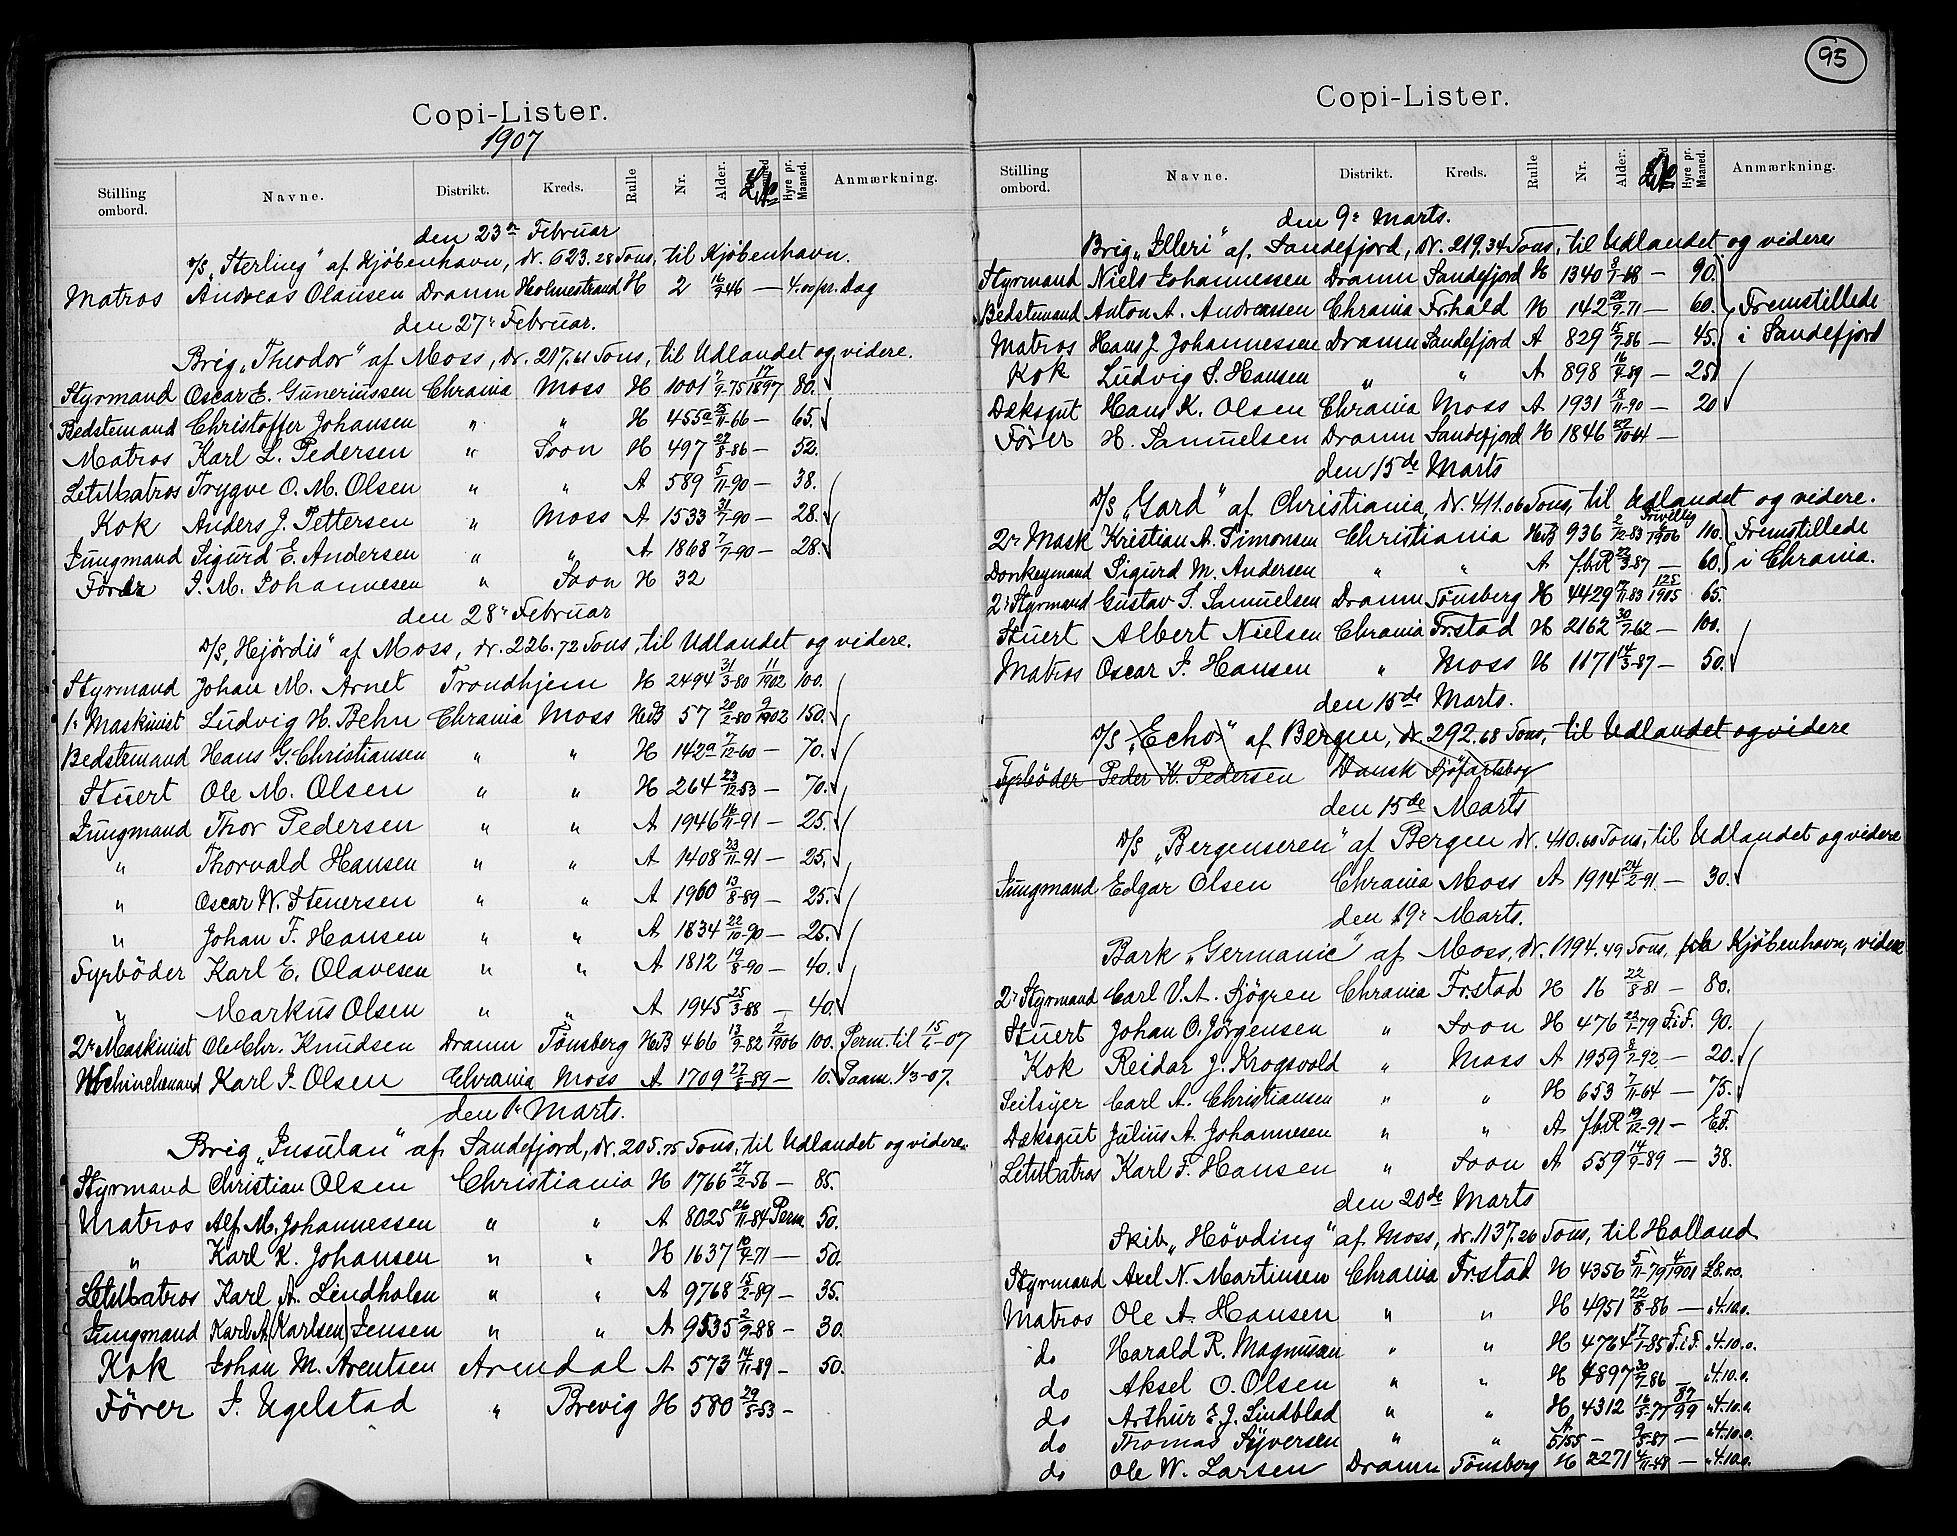 Copi-Lister.
1907
Stilling ombord. Navne. Distrikt. Kreds. Rulle Nr. Alder. Hyre pr. Maaned. Anmærkning.
den 23de Februar
D/S „Sterling" af Kjøbenhavn, dr. 623.28 Tons, til Kjøbenhavn.
Matros Andreas Olausen Dramn Holmestrand H 2 16/9-46 — 4.00 pr. Dag
den 27de Februar.
Brig „Theodor" af Moss, dr. 217.61 Tons, til Udlandet og videre.
Styrmand Oscar E. Guneriussen Chrania Moss H 1001 7/9-75 17/1897 80.
Bedstemand Christoffer Johansen " " H 455a 25/11-66 — 65.
Matros Karl L. Pedersen " Soon H 497 27/8-86 — 52.
LetMatros Trygve O. M. Olsen " " A 589 5/11-90 — 38.
Kok Anders J. Pettersen " Moss A 1533 31/7-90 — 28.
Jungmand Sigurd E. Andersen " " A 1868 7/7-90 — 28.
Fører J. M. Johannesen " Soon H 32
den 28de Februar
D/S „Hjördis" af Moss, dr. 226.72 Tons, til Udlandet og videre.
Styrmand Johan M. Arnet Trondhjem H 2494 31/3-80 11/1902 100.
1ste Maskinist Ludvig H. Behn Chrania Moss HdB 57 20/2-80 9/1902 150.
Bedstemand Hans G. Christiansen " " H 142a 7/12-60 — 70.
Stuert Ole M. Olsen " " H 264 23/12-53 — 70.
Jungmand Thor Pedersen " " A 1946 16/11-91 — 25.
" Thorvald Hansen " " A 1408 23/11-91 — 25.
" Oscar W. Stenersen " " A 1960 13/8-89 — 25.
" Johan F. Hansen " " A 1834 22/10-90 — 25.
Fyrböder Karl E. Olavesen " " A 1812 19/8-90 — 40.
" Markus Olsen " " A 1945 25/3-88 — 40.
2den Maskinist Ole Chr. Knudsen Dramn Tønsberg HdB 466 13/9-82 2/1906 100. Perm. til 15/4-07
Karl J. Olsen Chrania Moss A 1709 27/8-89 — 10. Paam. 1/3-07.
den 1ste Marts.
Brig „Insulan" af Sandefjord, dr. 205.75 Tons, til Udlandet og videre.
Styrmand Christian Olsen Christiania H 1766 27/2-56 — 85.
Matros Alf. M. Johannessen " " A 8025 26/11-84 Perm. 50.
" Karl K. Johansen " " H 1637 10/4-71 — 50.
LetMatros Karl A. Lindholm " " A 9768 15/2-89 — 35.
Jungmand Karl A (Karlsen) Jensen " " A 9535 2/9-88 — 30.
Kok Johan M. Arentsen Arendal A 573 14/11-89 — 50.
Fører J. Ugelstad " Brevig H 580 29/5-53 —
95
Copi-Lister.
Stilling ombord. Navne. Distrikt. Kreds. Rulle Nr. Alder. Hyre pr. Maaned. Anmærkning.
den 9de Marts.
Brig „Illeri" af Sandefjord, dr. 219.34 Tons, til Udlandet og videre
Styrmand Niels Johannessen Dramn Sandefjord H 1340 8/1-68 — 90.
Bedstemand Anton A. Andreassen Chrania Fr.hald H 142 20/9-71 — 60. Fremstillede
Matros Hans J. Johannessen Dramn Sandefjord A 829 15/7-86 — 45. i Sandefjord
Kok Ludvig S. Hansen " " A 898 16/4-89 — 25
Dæksgut Hans K. Olsen Chrania Moss A 1931 18/11-90 — 20
Fører H. Samuelsen Dramn Sandefjord H 1846 22/10-64 —
den 15de Marts
D/S „Gard" af Christiania, dr. 411.06 Tons, til Udlandet og videre.
2den Mask Kristian A. Simonsen Christiania HdB 936 2/12-83 Frivillig 6/1906 110. Fremstillede
Donkeymand Sigurd M. Andersen " " A f.b.R 22/3-87 — 60. i Chrania.
2den Styrmand Gustav S. Samuelsen Dramn Tønsberg H 4429 17/11-83 125/1905 65.
Stuert Albert Nielsen Chrania Fr.stad H 2162 30/7-62 — 100.
Matros Oscar J. Hansen " Moss H 1171 14/3-87 — 50.
den 15de Marts.
D/S „Echo" af Bergen, dr. 292.68 Tons, til Udlandet og videre
Fyrböder Peder K. Pedersen Dansk Sjøfartsbog
den 15de Marts
D/S „Bergenseren" af Bergen dr. 410.60 Tons, til Udlandet og videre
Jungmand Edgar Olsen Chrania Moss A 1914 24/2-91 — 30.
den 19de Marts.
Bark „Germanic" af Moss, dr. 1194.49 Tons, Kjøbenhavn, videre
2den Styrmand Carl V. A. Sjögren Chrania Fr.stad H 16 22/8-81 — 80.
Stuert Johan O. Jørgensen " Soon H 476 23/1-79 F.i.F. 90.
Kok Reidar J. Krogsvold " Moss A 1959 8/7-92 — 20.
Seilsyer Carl A. Christiansen " " H 653 7/11-64 — 75.
Dæksgut Julius A. Johannesen " " A f.b.R 19/12-91 —
LetMatros Karl F. Hansen " Soon A 559 14/9-89 — 38.
den 20de Marts
Skib „Hövding" af Moss, dr. 1137.26 Tons, til Holland
Styrmand Axel N. Martinsen Chrania Fr.stad H 4356 5/11-79 4/1901 £8.0.0.
Matros Ole A. Hansen " " H 4951 22/8-86 — „4.10.0.
do Harald R. Magnusen " " H 4764 17/1-85 F.i.F. „4.10.0.
do Aksel O. Olsen " " H 4897 30/7-86 — „4.10.0.
do Arthur E. J. Lindblad " " H 4312 16/5-77 87/99 „4.10.0.
do Thomas Syversen " " A 5155 — 9/5-87 — „4.10.0.
do Ole W. Larsen Dramn Tønsberg H 2271 4/11-48 — „4.10.0.